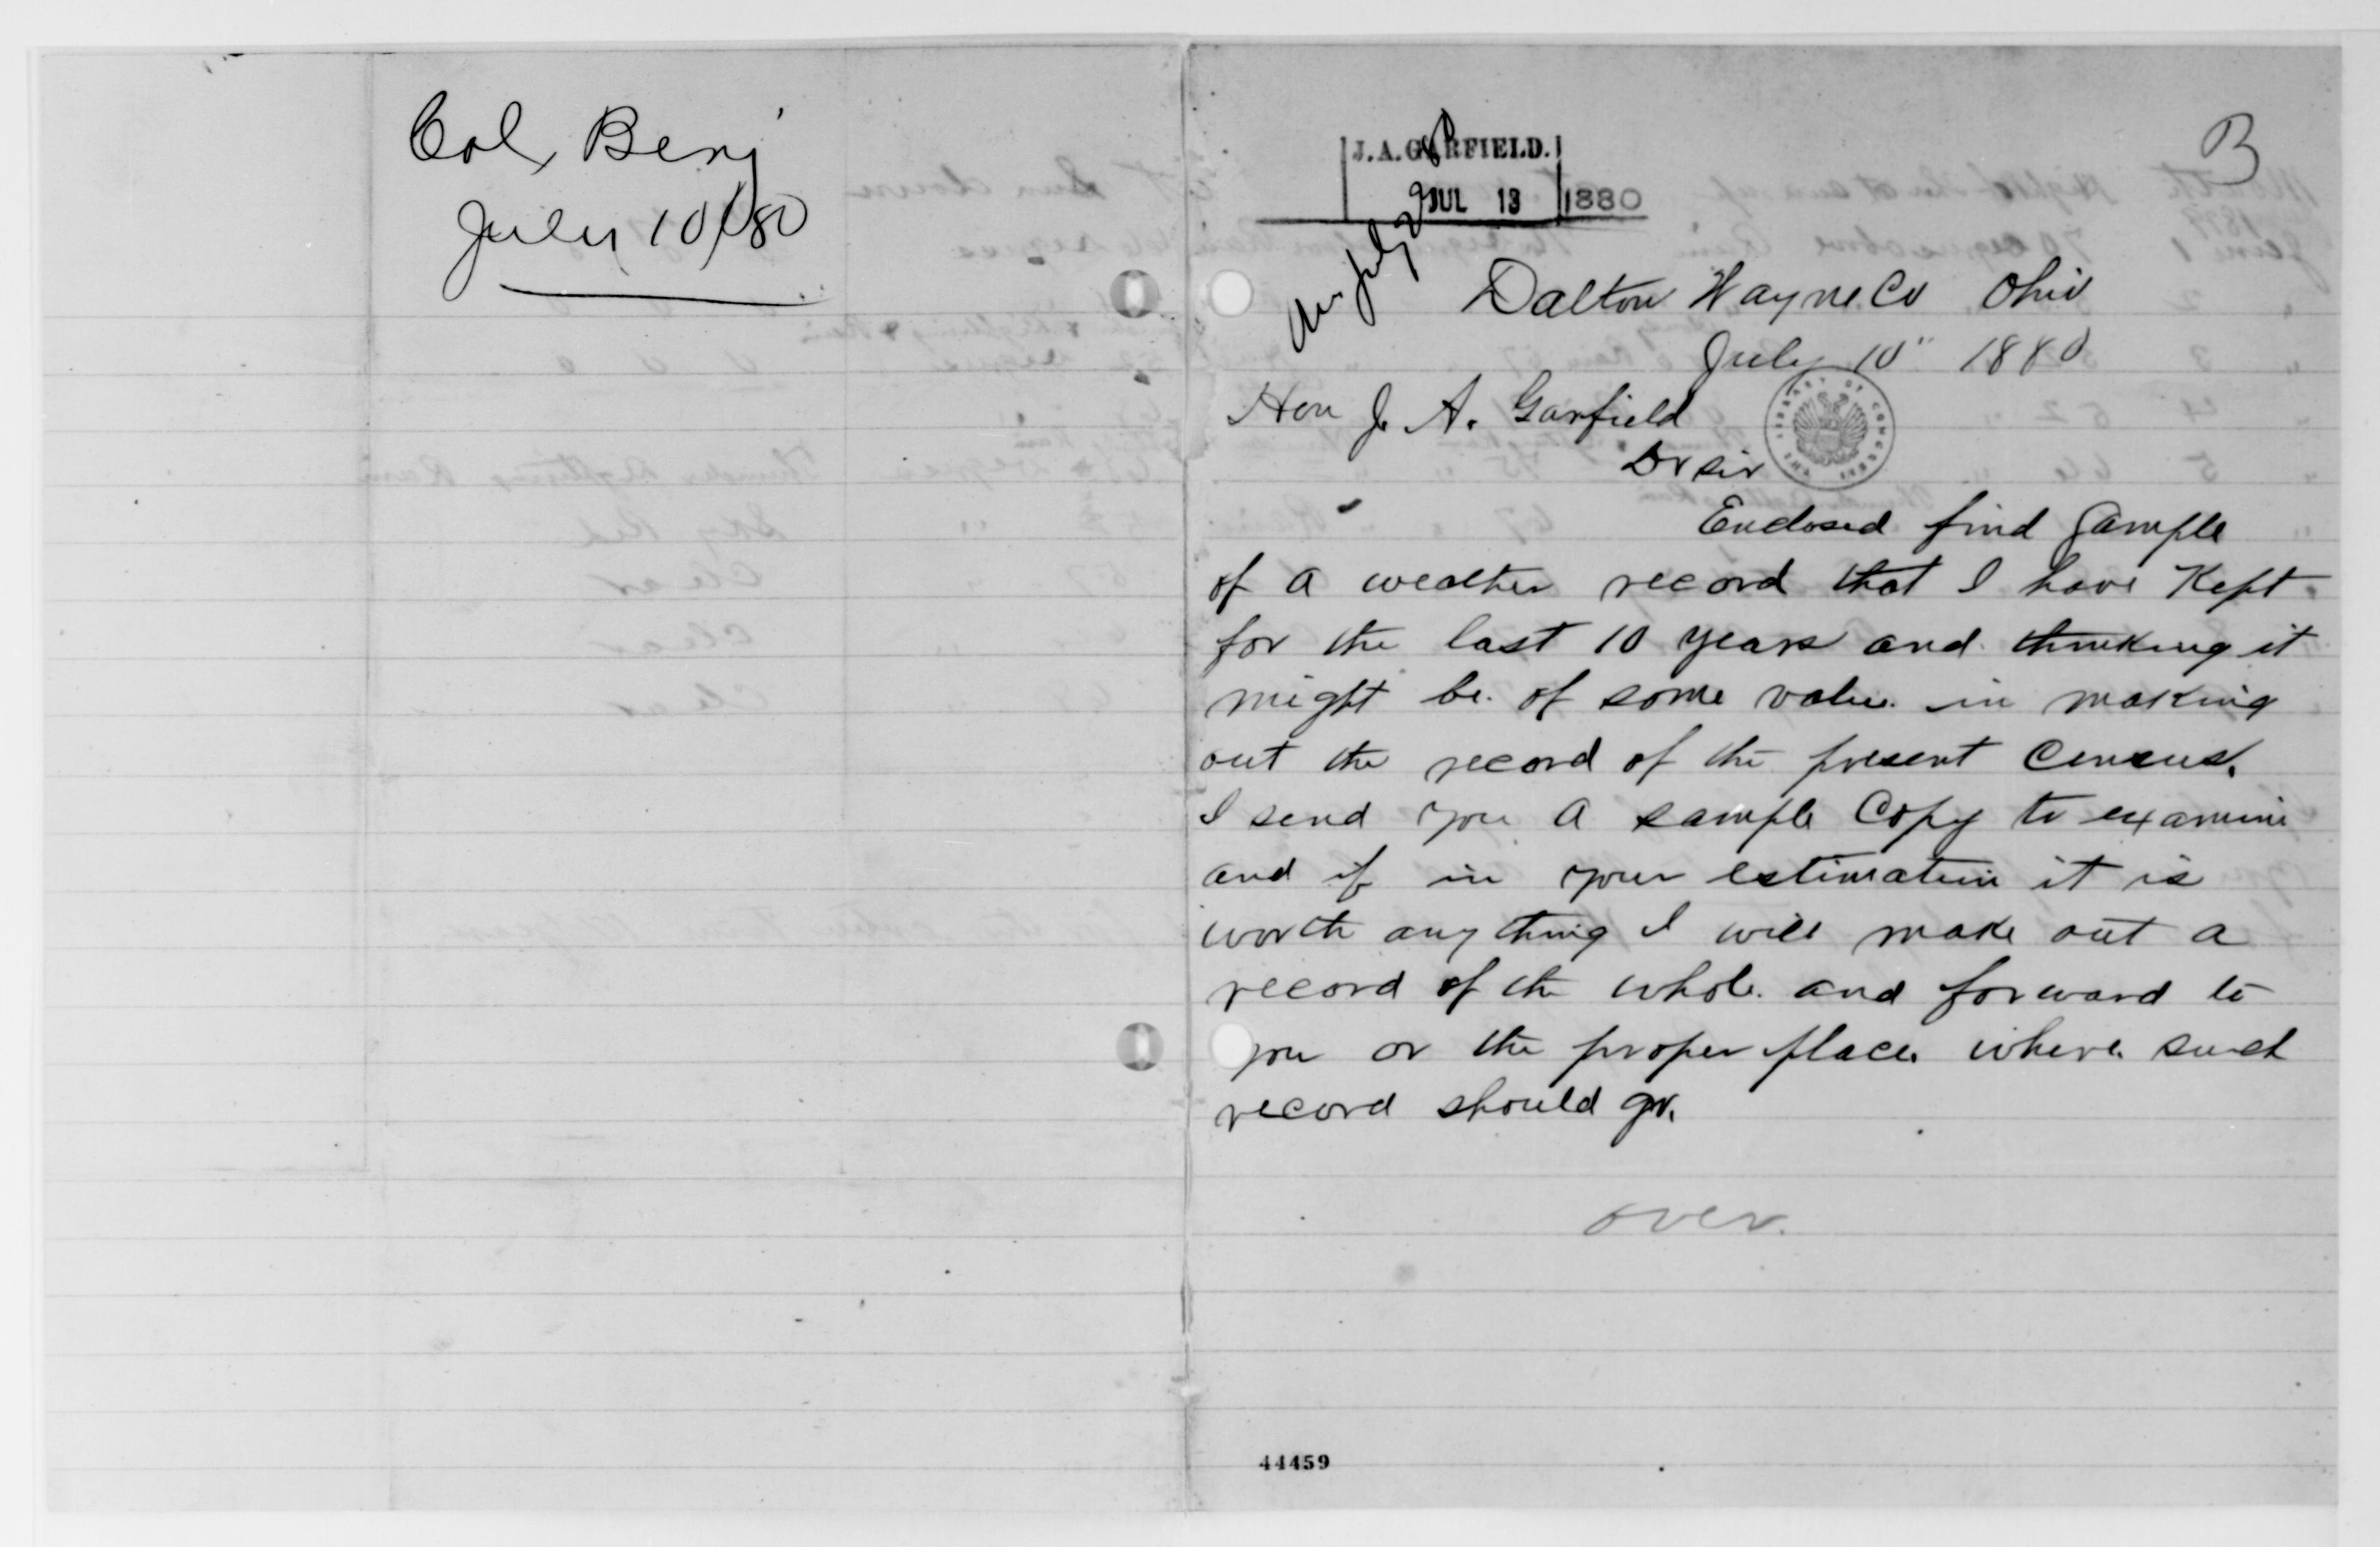 Col, Benj
July 10/80
B
J.A.GARFIELD.
JUL 13 1880
Ans July 28
Dalton Wayne Co Ohio
July 10" 1880
Hon J. A. Garfield
Dr sir
THE LIBRARY OF CONGRESS
Enclosed find Sample
of a weather record that I have Kept
for the last 10 years and thinking it
might be of some value in making
out the record of the present Census.
I send you a sample Copy to examine
and if in your estimation it is
worth any thing I will make out a
record of the whole and forward to
you or the proper place where such
record should go.
over.
44459